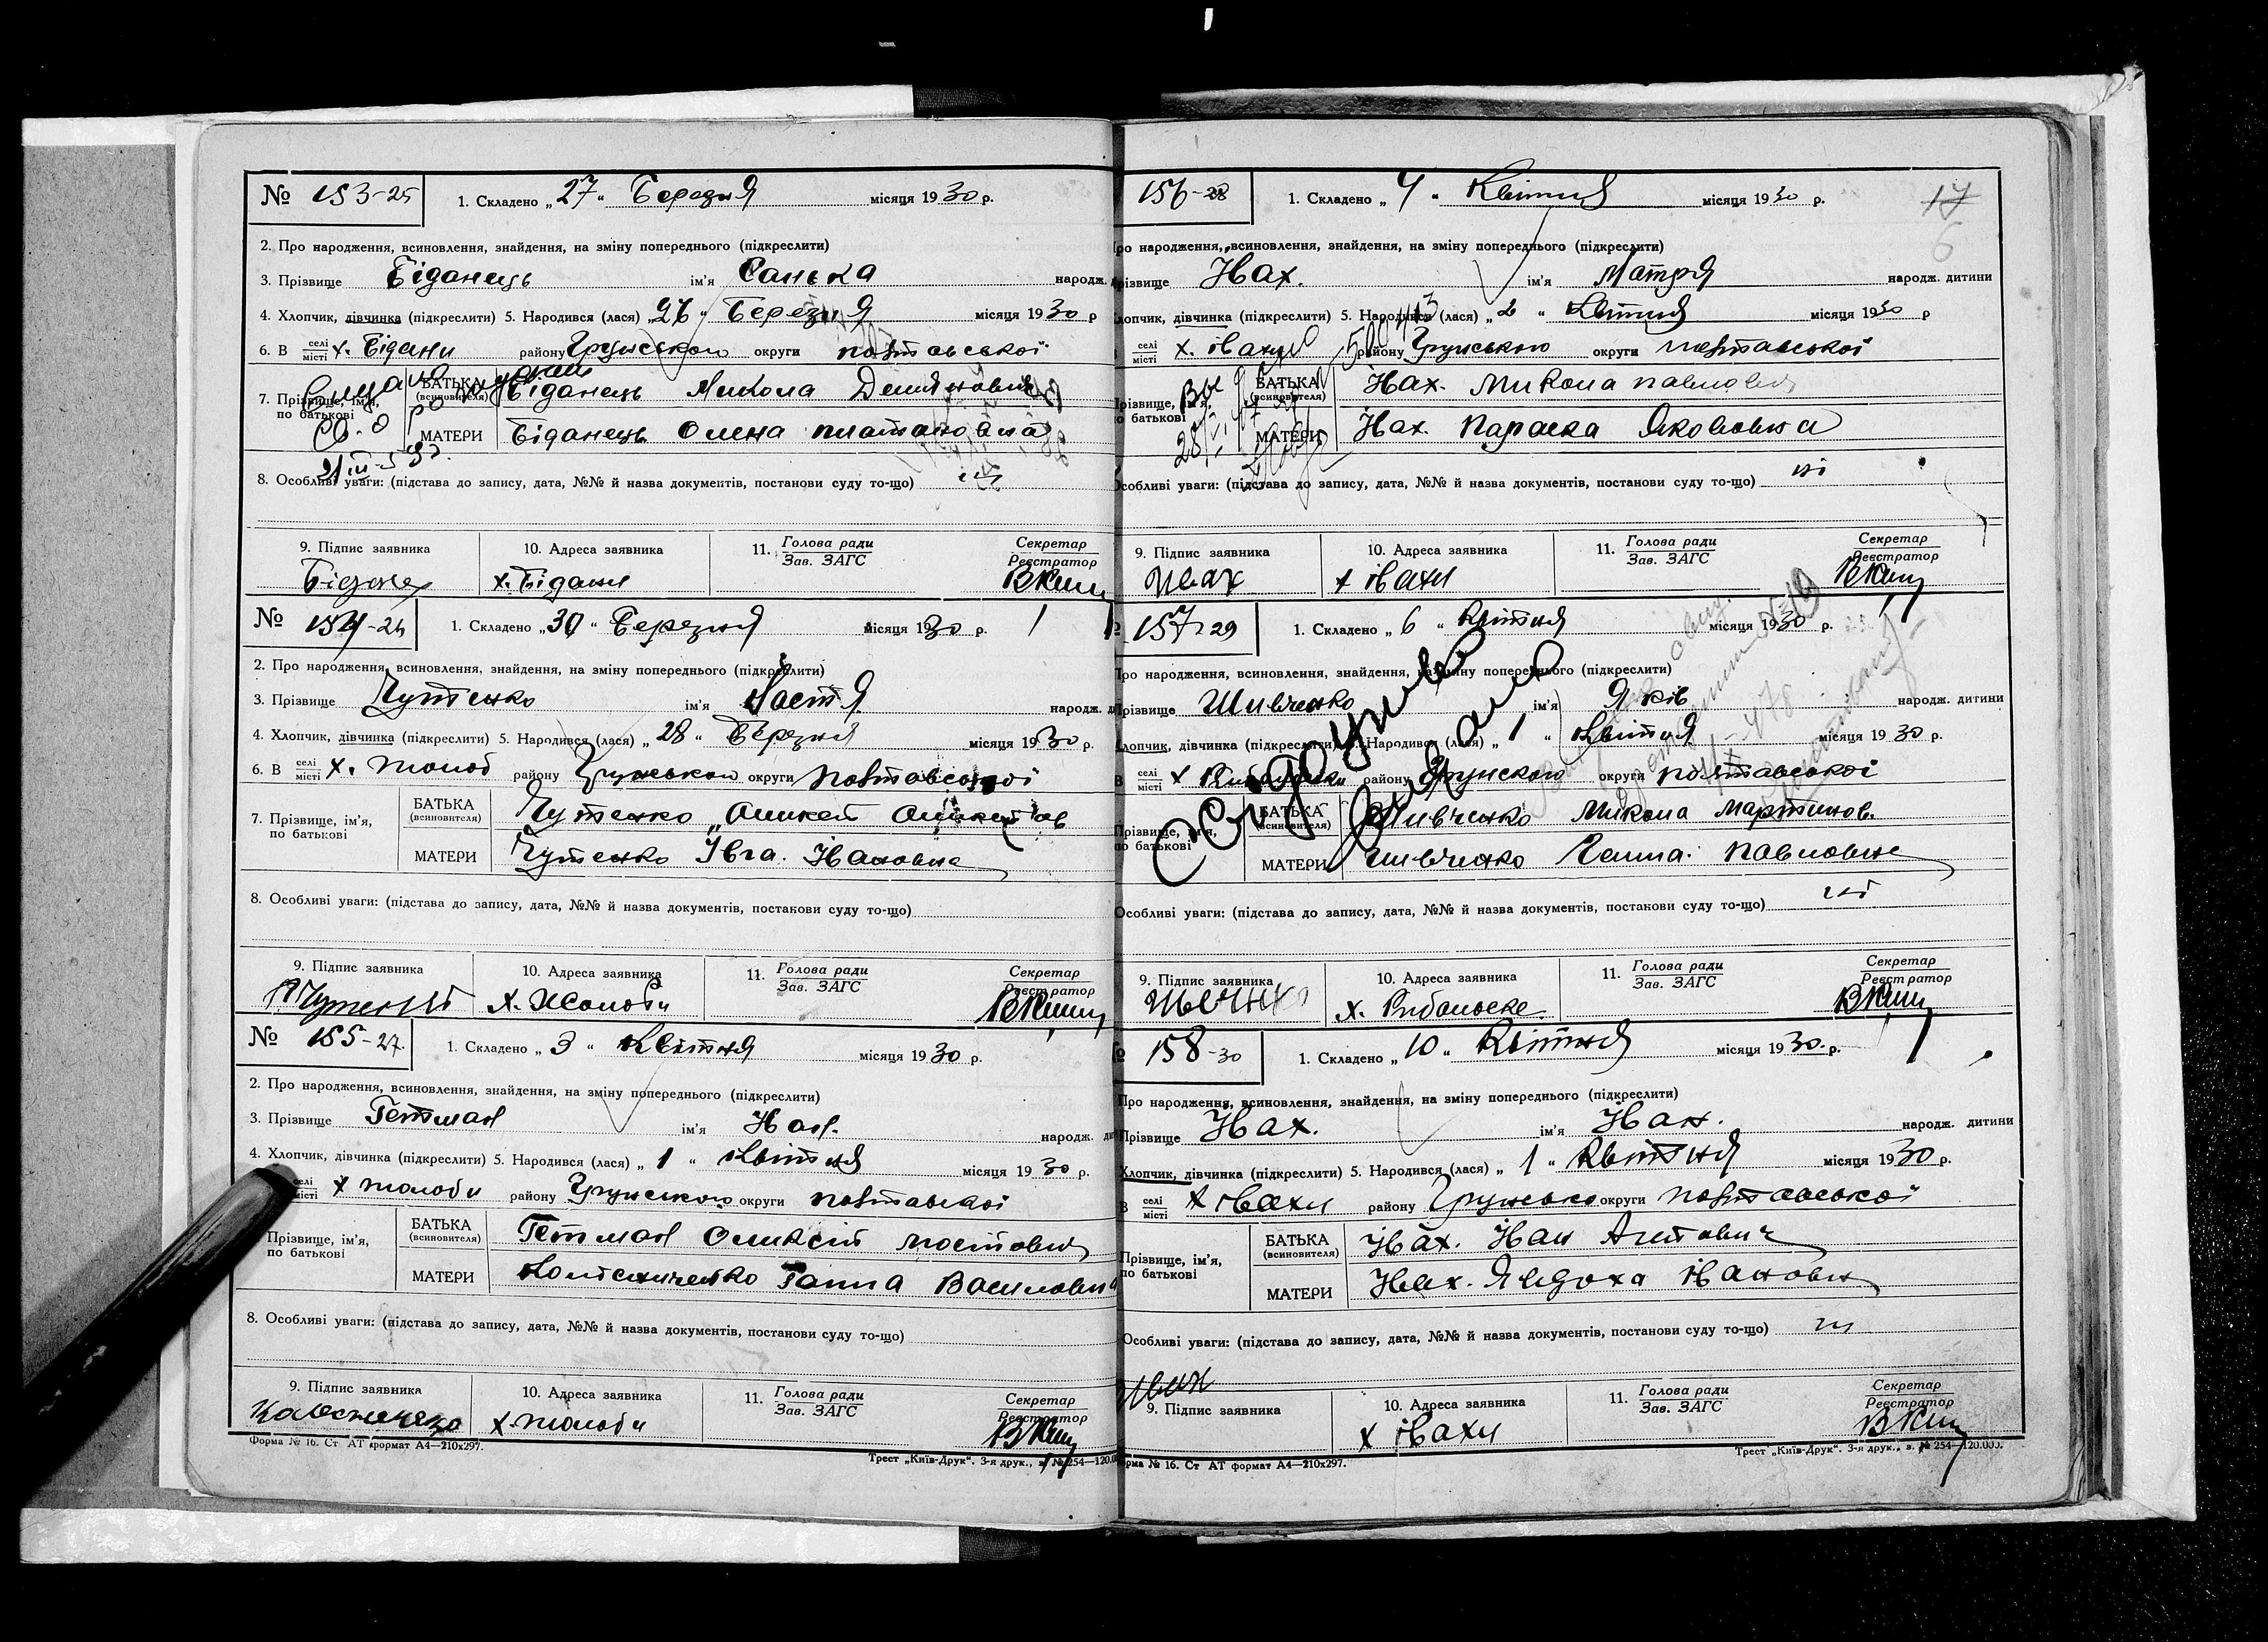 № 153-25 1. Складено „27“ Березня місяця 1930 р.
2. Про народження, всиновлення, знайдення, на зміну попереднього (підкреслити)
3. Прізвище Біданець ім'я Санька народж.
4. Хлопчик, дівчинка (підкреслити) 5. Народився (лася) „26“ Березня місяця 1930 р
6. В селі місті х. Бідани району Грунського округи полтавської
7. Прізвище, ім'я, по батькові
БАТЬКА (всиновителя) Біданець Микола Демянович
МАТЕРИ Біданець Олена платановна
8. Особливі уваги: (підстава до запису, дата, №№ й назва документів, постанови суду то-що) ні
9. Підпис заявника 10. Адреса заявника 11. Голова ради Зав. ЗАГС Секретар Реєстратор
Біданец х. Бідани
№ 154-26 1. Складено „30“ Березня місяця 1930 р.
2. Про народження, всиновлення, знайдення, на зміну попереднього (підкреслити)
3. Прізвище Чутенко ім'я Настя народж.
4. Хлопчик, дівчинка (підкреслити) 5. Народився (лася) „28“ Березня місяця 1930 р.
6. В селі місті х. району Грунського округи полтавської
7. Прізвище, ім'я, по батькові
БАТЬКА (всиновителя) Чутенко
МАТЕРИ Чутенко Івга Івановна
8. Особливі уваги: (підстава до запису, дата, №№ й назва документів, постанови суду то-що)
9. Підпис заявника 10. Адреса заявника 11. Голова ради Зав. ЗАГС Секретар Реєстратор
х. Жолоби
№ 155-27 1. Складено „3“ Квітня місяця 1930 р.
2. Про народження, всиновлення, знайдення, на зміну попереднього (підкреслити)
3. Прізвище Гетман ім'я народж.
4. Хлопчик, дівчинка (підкреслити) 5. Народився (лася) „1“ Квітня місяця 1930 р.
селі місті х жолоби району Грунського округи полтавської
Прізвище, ім'я, по батькові
БАТЬКА (всиновителя) Гетман Оликсій
МАТЕРИ Ганна Василовна
8. Особливі уваги: (підстава до запису, дата, №№ й назва документів, постанови суду то-що)
9. Підпис заявника 10. Адреса заявника 11. Голова ради Зав. ЗАГС Секретар Реєстратор
х. жолоби
Форма № 16. Ст АТ формат А4—210х297.
Трест „Київ-Друк“. 3-я друк., з. № 254—120.0
156-28 1. Складено „4“ Квітня місяця 1930 р.
17
6
Про народження, всиновлення, знайдення, на зміну попереднього (підкреслити)
Прізвище Івах. ім'я Матря народж. дитини
Хлопчик, дівчинка (підкреслити) 5. Народився (лася) „2“ Квітня місяця 1930 р
селі місті х. івахи району Грунського округи полтавської
Прізвище, ім'я, по батькові
БАТЬКА (всиновителя) Івах. Микола павлович
МАТЕРИ Івах. Параска Якововна
Особливі уваги: (підстава до запису, дата, №№ й назва документів, постанови суду то-що) ні
9. Підпис заявника 10. Адреса заявника 11. Голова ради Зав. ЗАГС Секретар Реєстратор
Ивах х івахи
157-29 1. Складено „6“ Квітня місяця 1930 р.
Про народження, всиновлення, знайдення, на зміну попереднього (підкреслити)
Прізвище Шивченко ім'я Яків народж. дитини
Хлопчик, дівчинка (підкреслити) 5. Народився (лася) „1“ Квітня місяця 1930 р.
В селі місті х району Грунского округи полтавської
Прізвище, ім'я, по батькові
БАТЬКА (всиновителя) Шивченко Микола Мартинов.
МАТЕРИ Шивченко Ганна. павловна
Особливі уваги: (підстава до запису, дата, №№ й назва документів, постанови суду то-що) ні
9. Підпис заявника 10. Адреса заявника 11. Голова ради Зав. ЗАГС Секретар Реєстратор
158-30 1. Складено „10“ Квітня місяця 1930. р.
Про народження, всиновлення, знайдення, на зміну попереднього (підкреслити)
Прізвище Івах. ім'я Іван. народж. дитини
Хлопчик, дівчинка (підкреслити) 5. Народився (лася) „1“ Квітня місяця 1930 р.
В селі місті х івахи району Грунсько округи полтавської
Прізвище, ім'я, по батькові
БАТЬКА (всиновителя) Івах. Іван
МАТЕРИ Івах. Явдоха івановн
Особливі уваги: (підстава до запису, дата, №№ й назва документів, постанови суду то-що) ні
Ивах
9. Підпис заявника 10. Адреса заявника 11. Голова ради Зав. ЗАГС Секретар Реєстратор
х івахи
орма № 16. Ст АТ формат А4—210х297.
Трест „Київ-Друк“. 3-я друк., з. № 254—120.000.